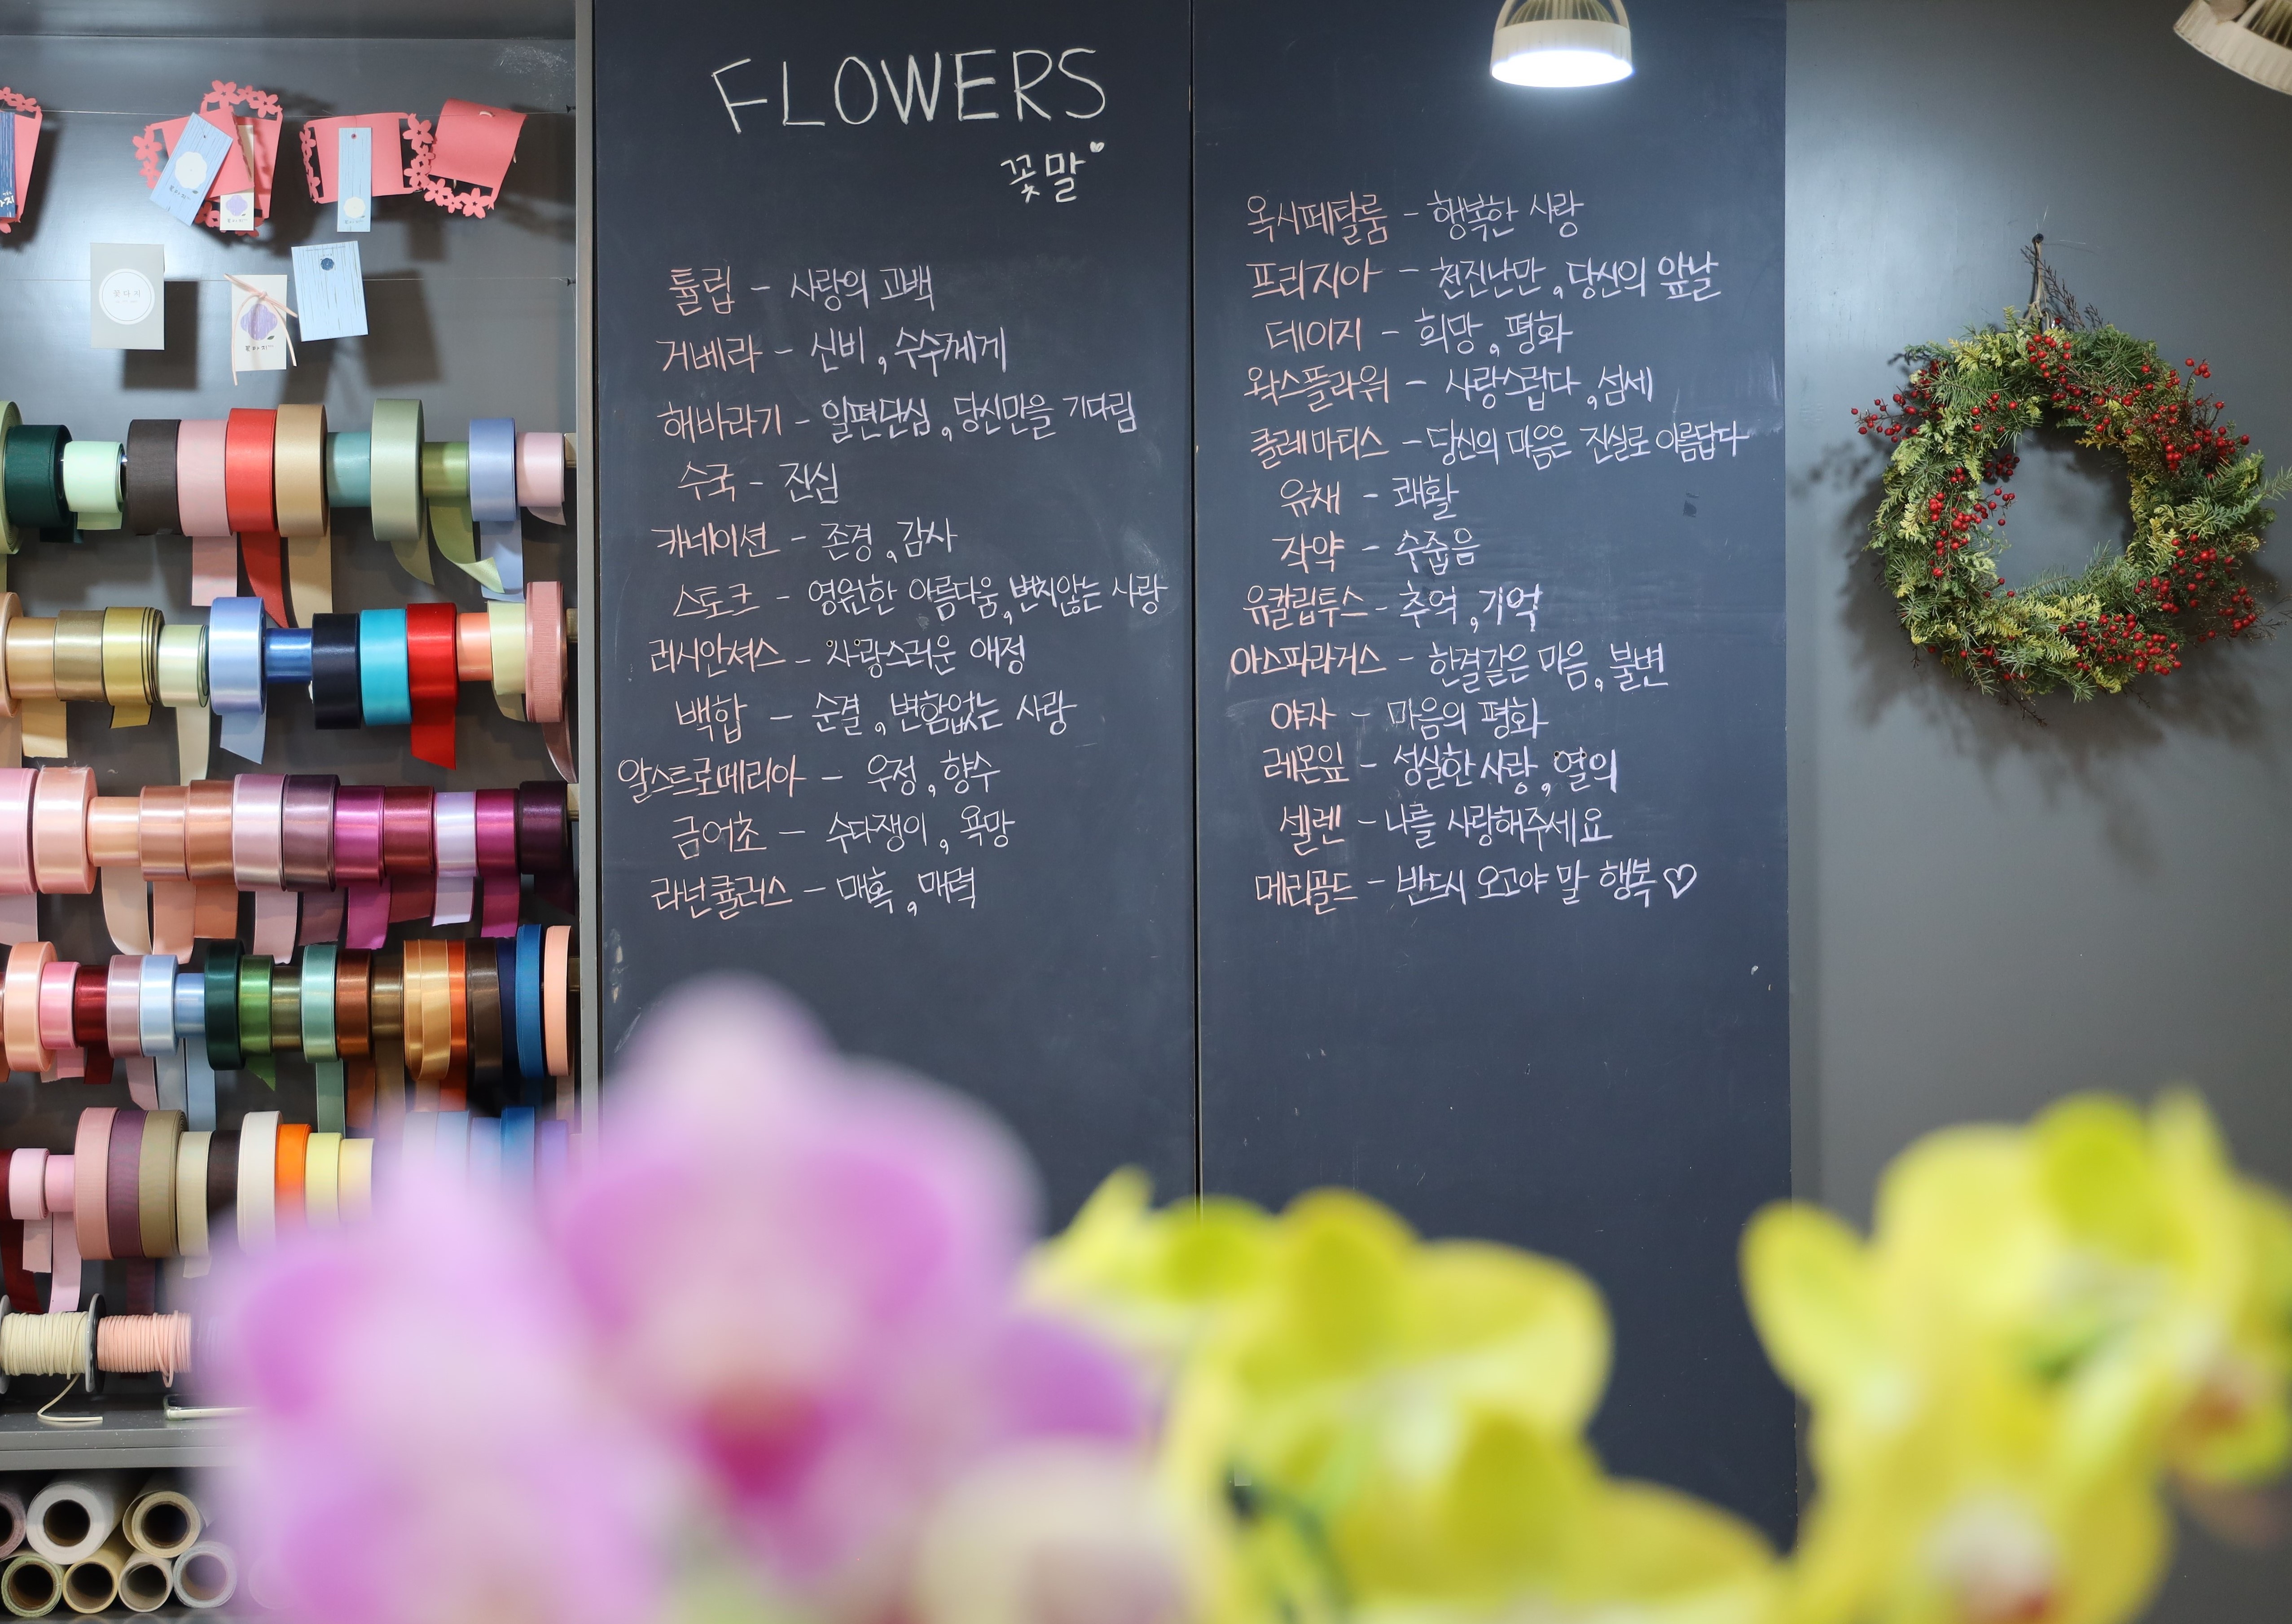 FLOWERS
꽃말
튤립 - 사랑의 고백
거베라 - 신비, 수수께끼
해바라기 - 일편단심, 당신만을 기다림
수국 - 진심
카네이션 - 존경, 감사
스토크 - 영원한 아름다움, 변치않는 사랑
리시안셔스 - 사랑스러운 애정
백합 - 순결, 변함없는 사랑
알스트로메리아 - 우정, 향수
금어초 - 수다쟁이, 욕망
라넌큘러스 - 매혹, 매력
옥시페탈룸 - 행복한 사랑
프리지아 - 천진난만, 당신의 앞날
데이지 - 희망, 평화
왁스플라워 - 사랑스럽다, 섬세
클레마티스 - 당신의 마음은 진실로 아름답다
유채 - 쾌활
작약 - 수줍음
유칼립투스 - 추억, 기억
아스파라거스 - 한결같은 마음, 불변
야자 - 마음의 평화
레몬잎 - 성실한 사랑, 열의
셀렘 - 나를 사랑해주세요
메리골드 - 반드시 오고야 말 행복♡